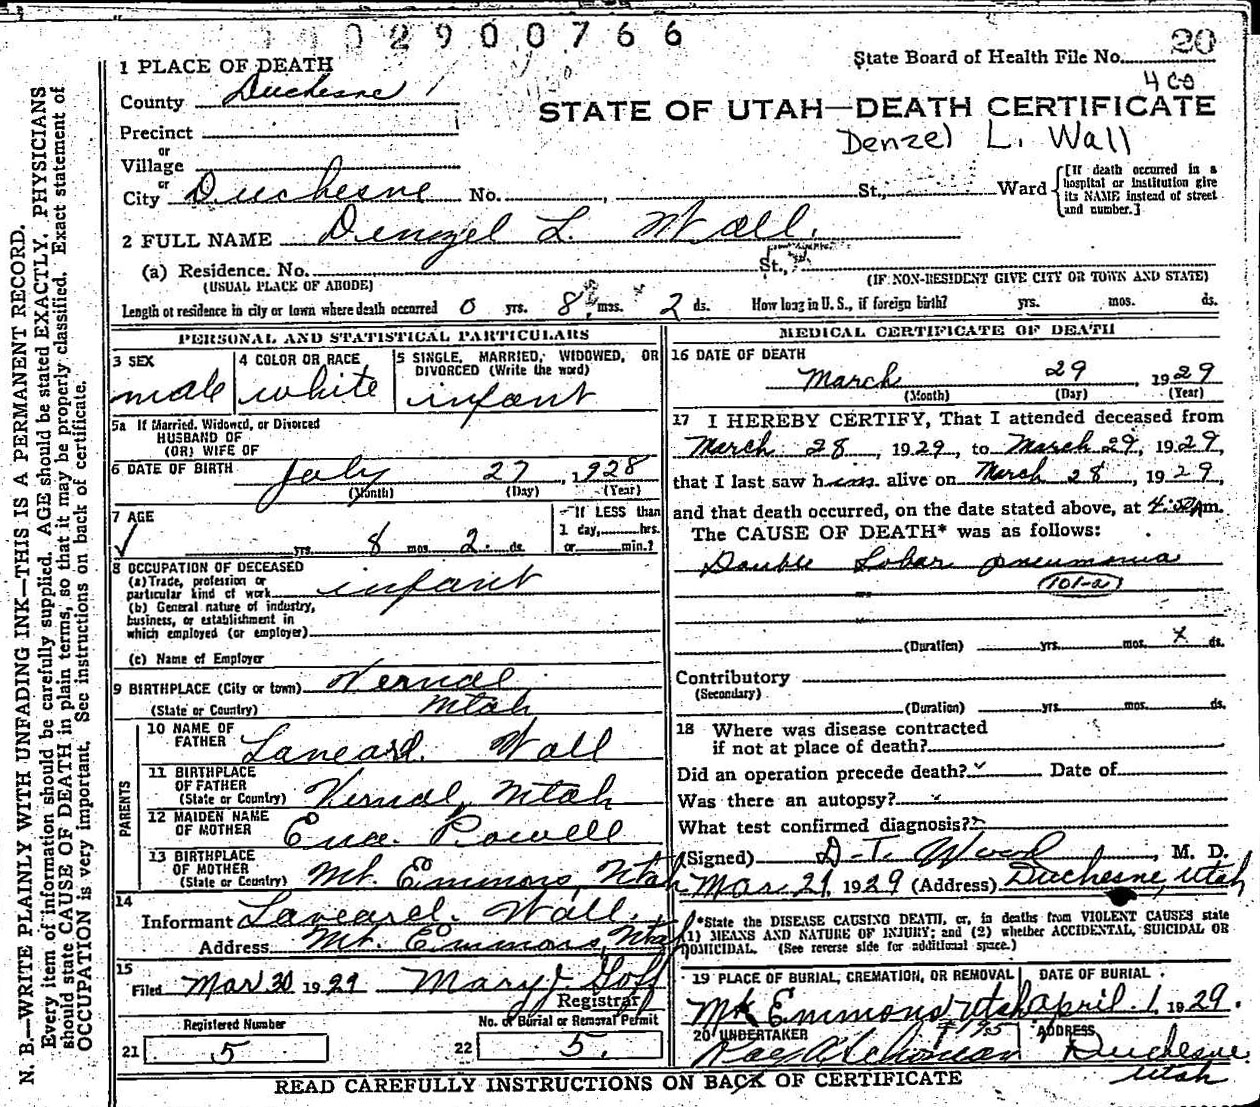 0 2 9 0 0 7 6 6
State Board of Health File No. 20
4 CO
1 PLACE OF DEATH
County Duchesne
STATE OF UTAH—DEATH CERTIFICATE
Denzel L. Wall
Precinct
or
Village
or
City Duchesne No. , St., Ward
[If death occurred in a hospital or institution give its NAME instead of street and number.]
2 FULL NAME Denzel L. Wall.
(a) Residence. No. St.,
(USUAL PLACE OF ABODE) (IF NON-RESIDENT GIVE CITY OR TOWN AND STATE)
Length of residence in city or town where death occurred 0 yrs. 8 mos. 2 ds. How long in U. S., if foreign birth? yrs. mos. ds.
PERSONAL AND STATISTICAL PARTICULARS
3 SEX male
4 COLOR OR RACE white
5 SINGLE, MARRIED, WIDOWED, OR DIVORCED (Write the word) infant
5a If Married, Widowed, or Divorced
HUSBAND OF
(OR) WIFE OF
6 DATE OF BIRTH July 27, 1928
(Month) (Day) (Year)
7 AGE yrs. 8 mos. 2 ds.
If LESS than
1 day, hrs.
or min.?
8 OCCUPATION OF DECEASED
(a) Trade, profession or
particular kind of work infant
(b) General nature of industry,
business, or establishment in
which employed (or employer)
(c) Name of Employer
9 BIRTHPLACE (City or town) Vernal
(State or Country) Utah
PARENTS
10 NAME OF FATHER Wall
11 BIRTHPLACE OF FATHER
(State or Country) Vernal, Utah
12 MAIDEN NAME OF MOTHER Powell
13 BIRTHPLACE OF MOTHER
(State or Country) Mt. Emmons, Utah
14
Informant Wall.
Address Mt. Emmons, Utah
15
Filed Mar 30 1929 Mary J. Goff
Registrar
Registered Number
21 5
No. of Burial or Removal Permit
22 5.
MEDICAL CERTIFICATE OF DEATH
16 DATE OF DEATH
March 29, 1929
(Month) (Day) (Year)
17 I HEREBY CERTIFY, That I attended deceased from
March 28, 1929, to March 29, 1929,
that I last saw him alive on March 28, 1929,
and that death occurred, on the date stated above, at m.
The CAUSE OF DEATH* was as follows:
Double Lobar pneumonia
101-a
(Duration) yrs. mos. ds.
Contributory
(Secondary)
(Duration) yrs. mos. ds.
18 Where was disease contracted
if not at place of death?
Did an operation precede death? Date of
Was there an autopsy?
What test confirmed diagnosis?
(Signed) D. T. , M. D.
Mar. 1929 (Address) Duchesne, Utah
*State the DISEASE CAUSING DEATH, or, in deaths from VIOLENT CAUSES state
(1) MEANS AND NATURE OF INJURY; and (2) whether ACCIDENTAL, SUICIDAL OR
HOMICIDAL. (See reverse side for additional space.)
19 PLACE OF BURIAL, CREMATION, OR REMOVAL DATE OF BURIAL
Mt Emmons Utah April 1 1929.
20 UNDERTAKER ADDRESS
Duchesne
Utah
READ CAREFULLY INSTRUCTIONS ON BACK OF CERTIFICATE
N. B.—WRITE PLAINLY WITH UNFADING INK—THIS IS A PERMANENT RECORD.
Every item of information should be carefully supplied. AGE should be stated EXACTLY. PHYSICIANS
should state CAUSE OF DEATH in plain terms, so that it may be properly classified. Exact statement of
OCCUPATION is very important. See instructions on back of certificate.